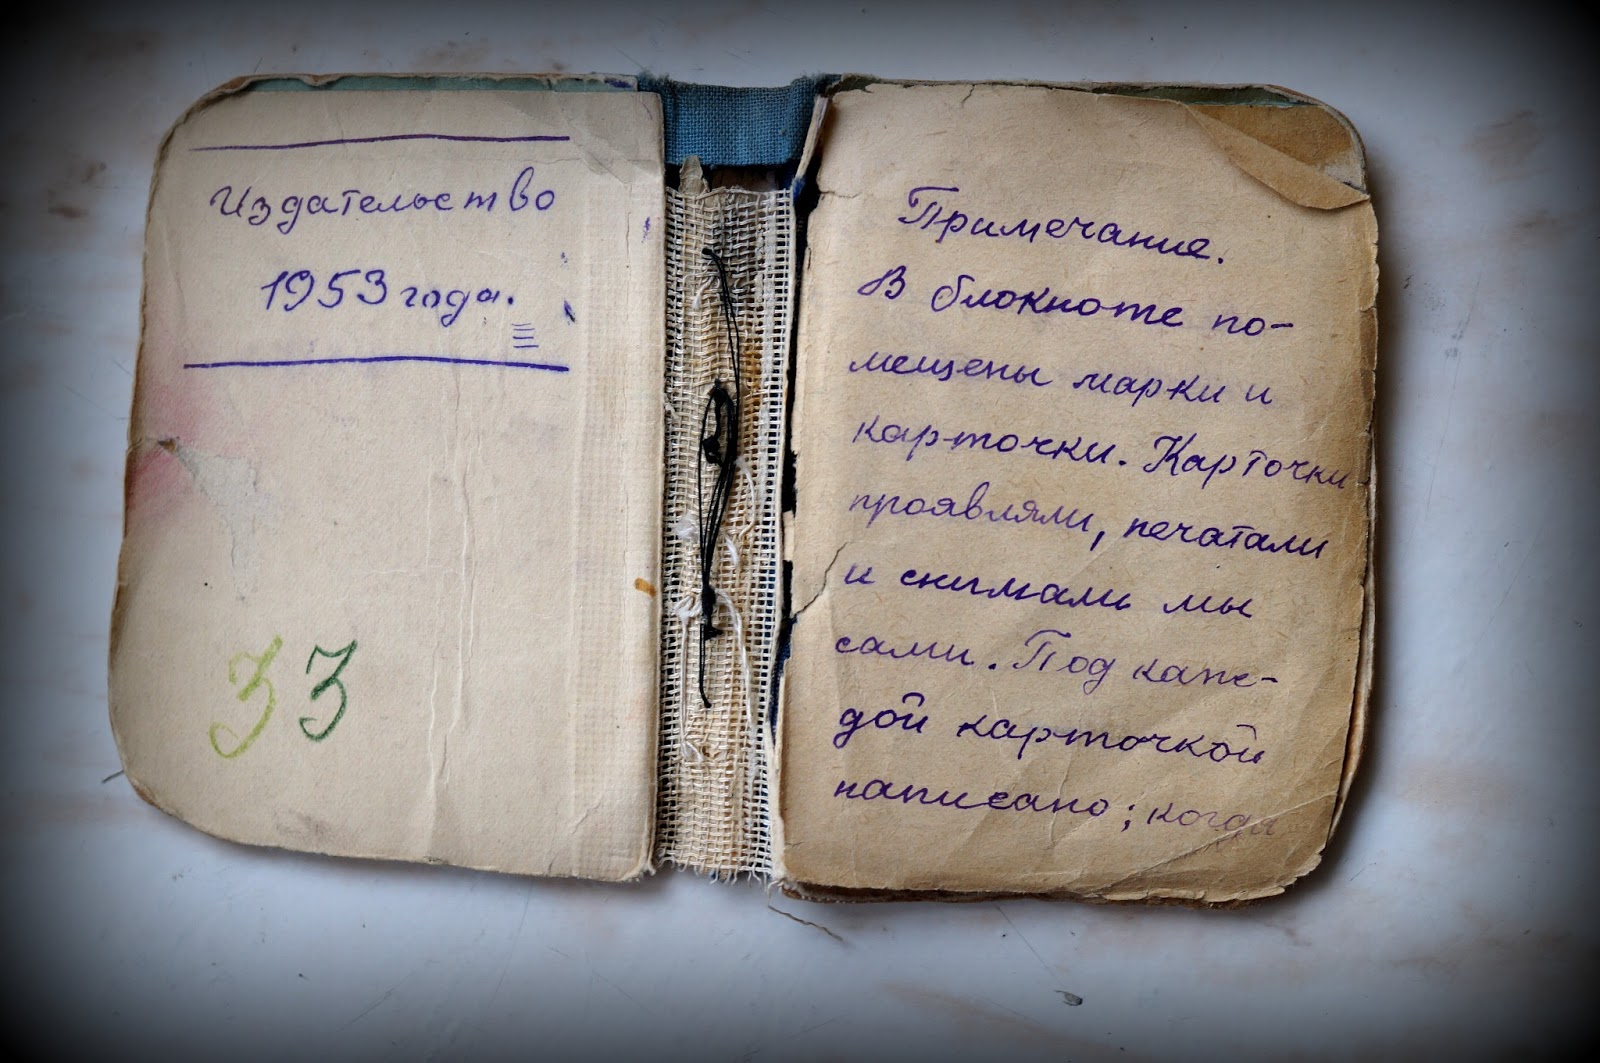 Издательство
1953 года.
33
Примечание.
В блокноте по-
мещены марки и
карточки. Карточки
проявляли, печатали
и снимали мы
сами. Под каж-
дой карточкой
написано; когда